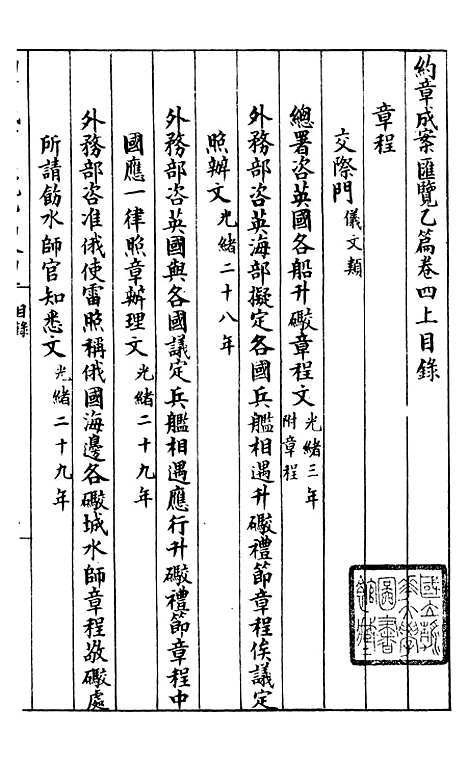 約章成案匯覽乙篇卷四上目錄
章程
交際門儀文類
總署咨英國各船升礮章程文光緒三年附章程
外務部咨英海部擬定各國兵艦相遇升礮禮節章程俟議定
照辦文光緒二十八年
外務部咨英國與各國議定兵艦相遇應行升礮禮節章程中
國應一律照章辦理文光緒二十九年
外務部咨准俄使雷照稱俄國海邊各礮城水師章程放礮處
所請飭水師官知悉文光緒二十九年
目錄